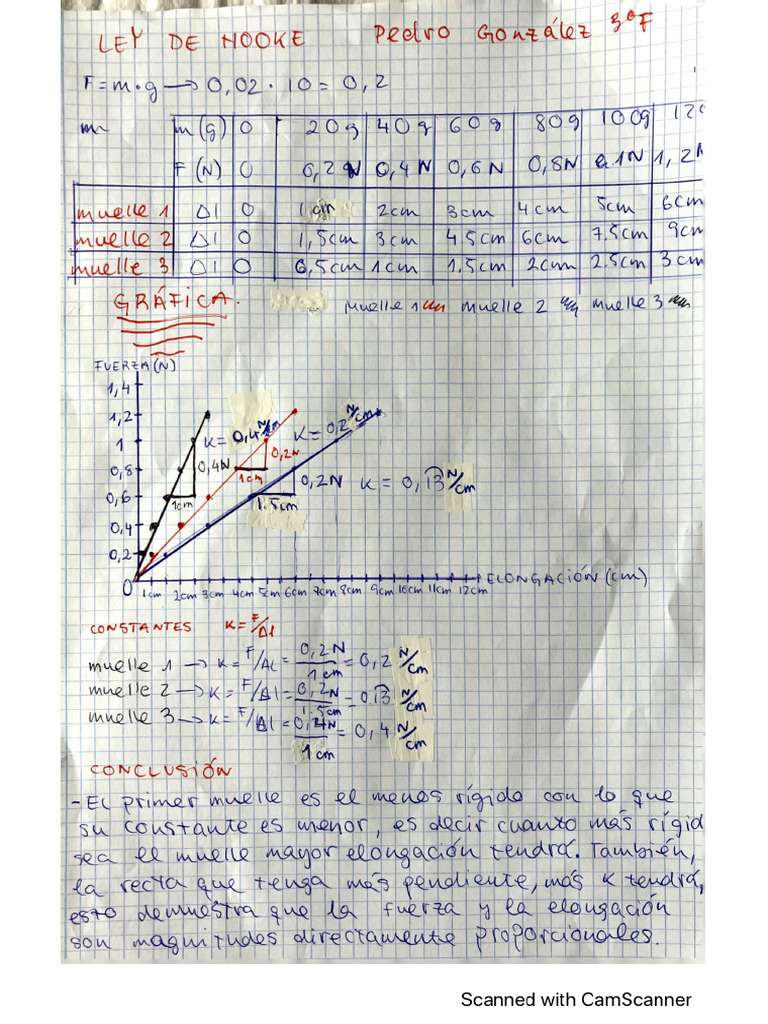 LEY DE HOOKE Pedro González 3ºF
F = m · g → 0,02 · 10 = 0,2
m(g) 0 20g 40g 60g 80g 100g 120
F (N) 0 0,2N 0,4N 0,6N 0,8N 1N 1,2N
muelle 1 Δl 0 1 2cm 3cm 4cm 5cm 6cm
muelle 2 Δl 0 1,5cm 3cm 4.5cm 6cm 7.5cm 9cm
muelle 3 Δl 0 0,5cm 1cm 1.5cm 2cm 2.5cm 3cm
GRÁFICA.
muelle 1 muelle 2 muelle 3
FUERZA (N)
1,4
1,2
1
0,8
0,6
0,4
0,2
0
K = 0,4 N/cm
K = 0,2 N/cm
0,4N
1cm
0,2N
1cm
0,2N
1.5cm
K = 0,13 N/cm
1cm 2cm 3cm 4cm 5cm 6cm 7cm 8cm 9cm 10cm 11cm 12cm
ELONGACIÓN (cm)
CONSTANTES K = F/Δl
muelle 1 → K = F/Δl = 0,2N/1cm = 0,2 N/cm
muelle 2 → K = F/Δl = 0,2N/1.5cm = 0.13 N/cm
muelle 3 → K = F/Δl = 0,4N/1cm = 0,4 N/cm
CONCLUSIÓN
- El primer muelle es el menos rígido con lo que
su constante es menor, es decir cuanto más rígid
sea el muelle mayor elongación tendrá. También,
la recta que tenga más pendiente, más K tendrá,
esto demuestra que la fuerza y la elongación
son magnitudes directamente proporcionales.
Scanned with CamScanner